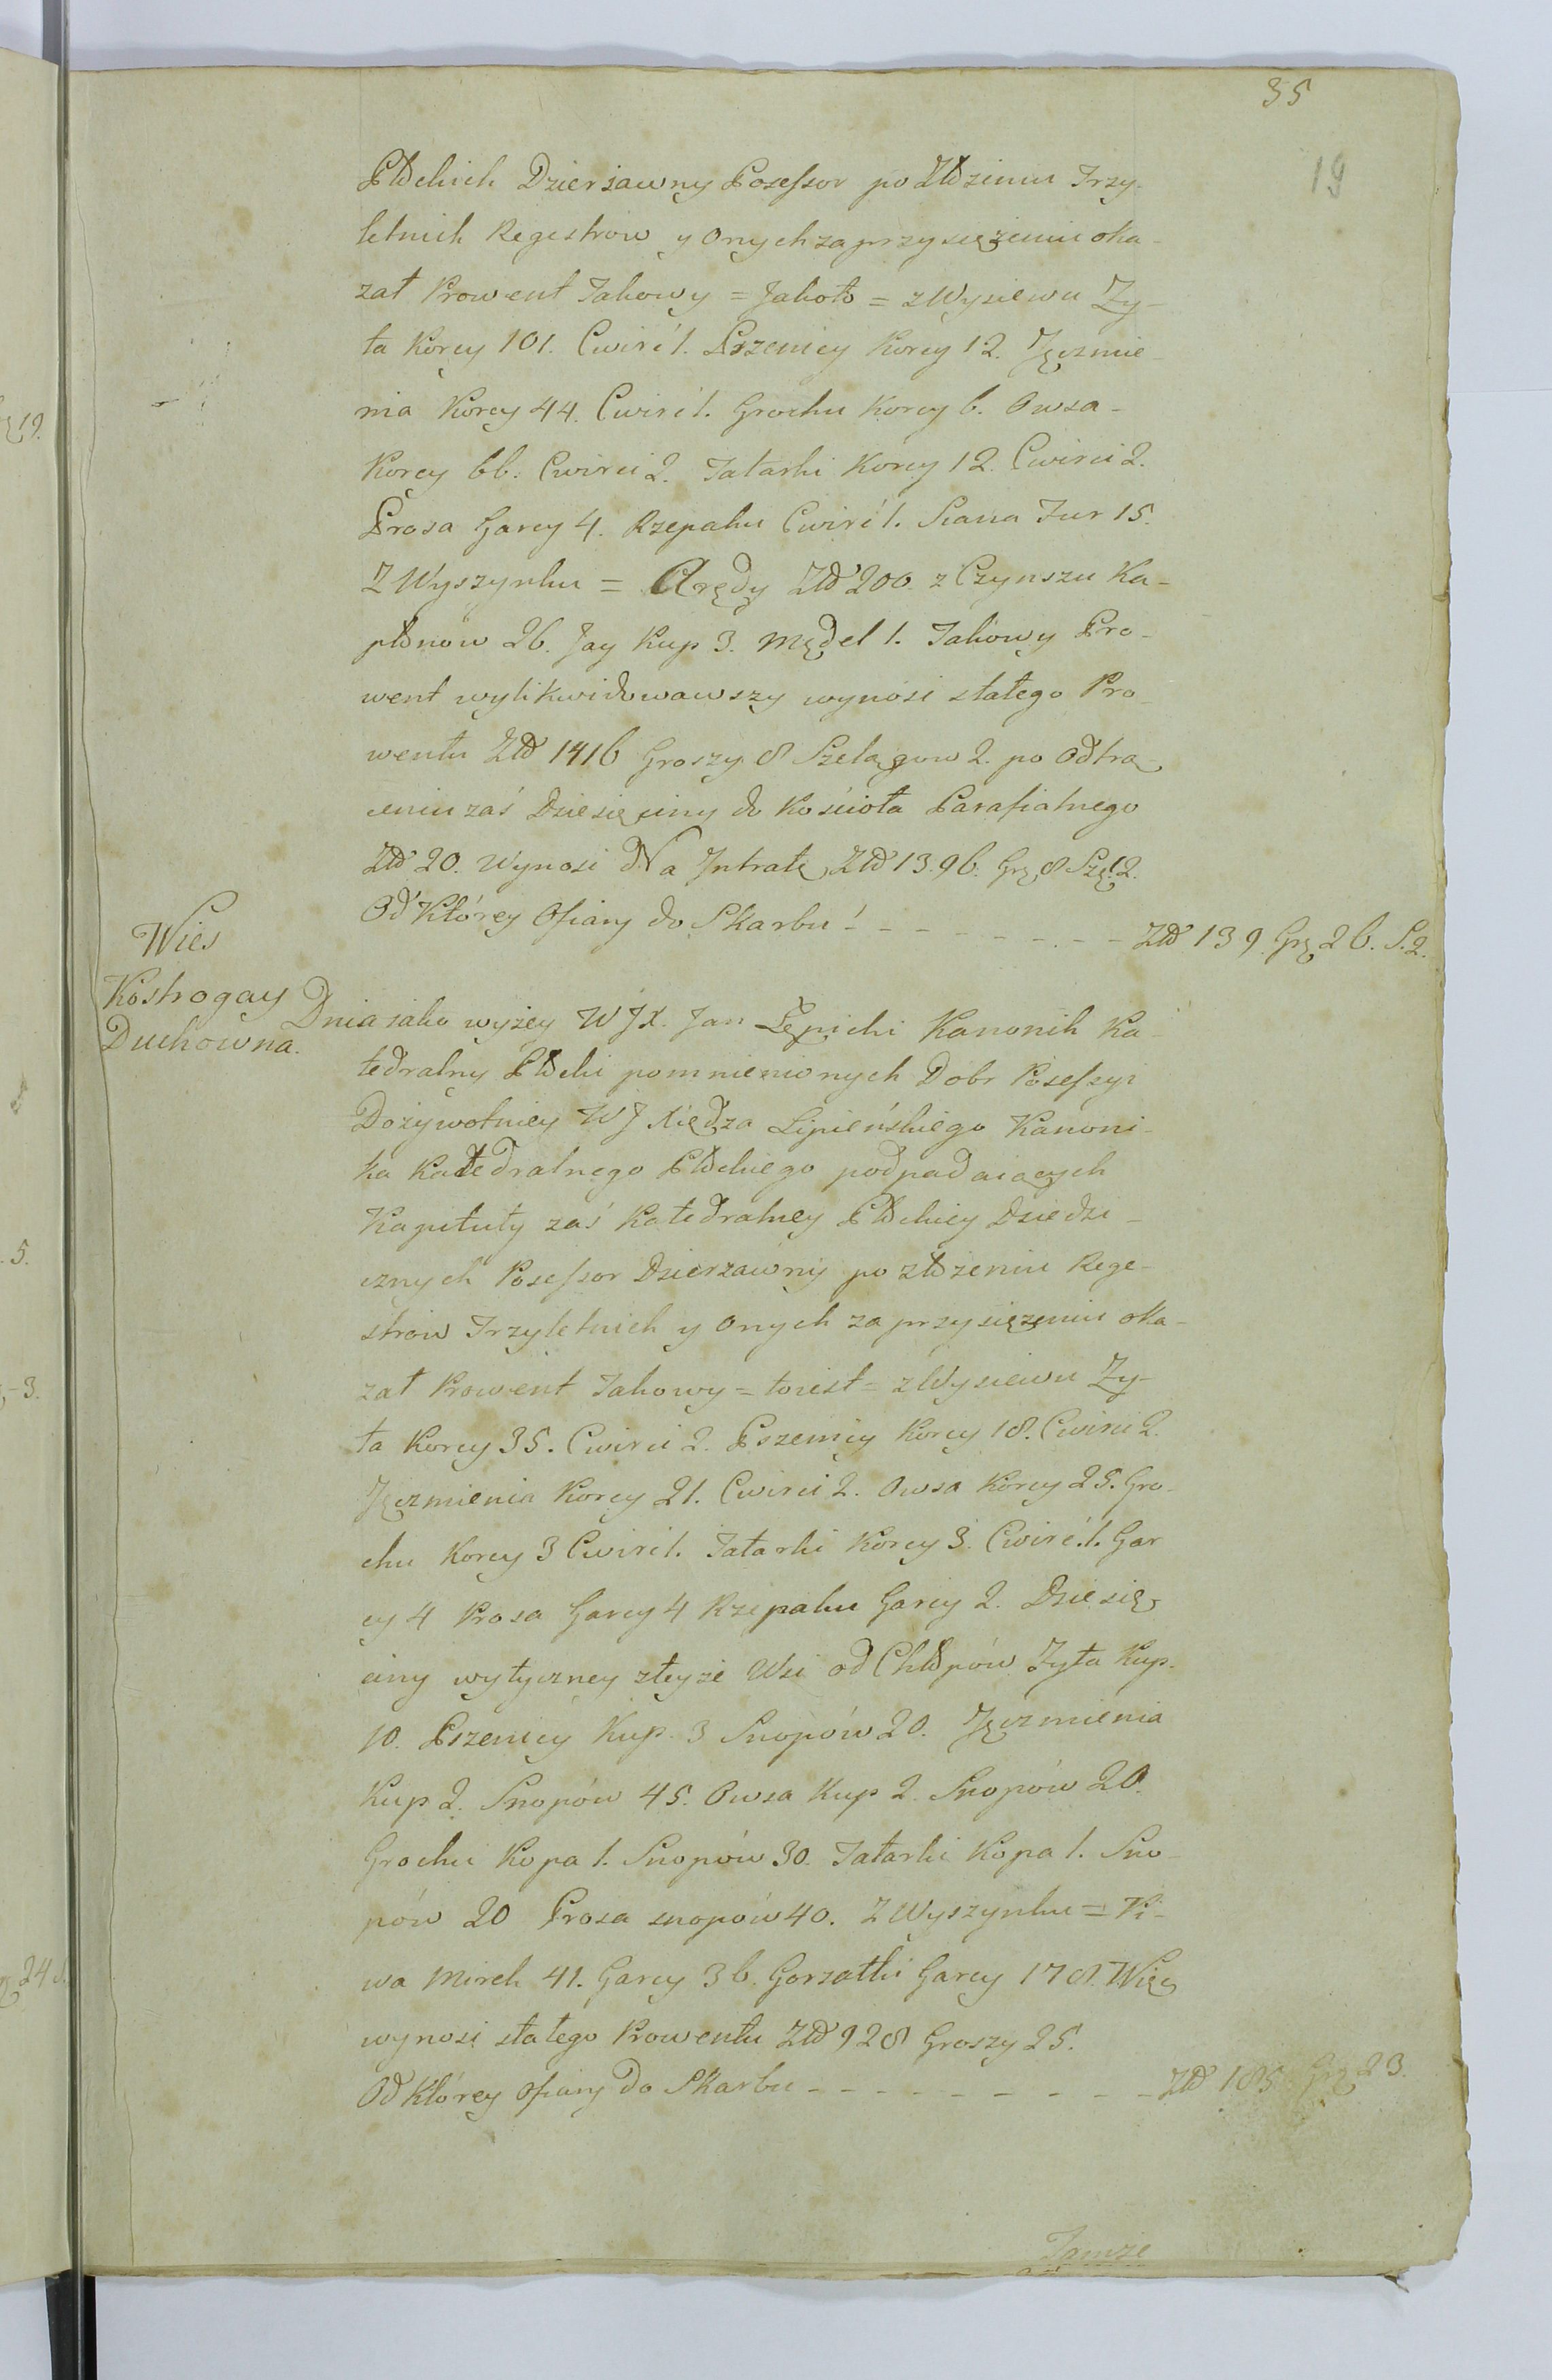 35
19
Płockich Dzierżawny Posessor po złożeniu Trzy-
letnich Regestrów y Onych zaprzysiężeniu oka-
zał Prowent Takowy = Jakoto = z Wysiewu Zy-
ta Korcy 101. Cwirć 1. Pszenicy Korcy 12. Jęczmie-
nia Korcy 44. Cwirć 1. Grochu Korcy 6. Owsa-
Korcy 66. Cwirci 2. Tatarki Korcy 12. Cwirci 2.
Prosa Garcy 4. Rzepaku Cwirć 1. Siana Fur 15.
Z Wyszynku = Arędy Złł 200. z Czynszu Ka-
płonow 26. Jay Kup 3. Mędel 1. Takowy Pro-
went wylikwidowawszy wynosi stałego Pro-
wentu Złł 1416 Groszy 8 Szelągow 2. po Odtrą-
ceniu zaś Dziesięciny do Kościoła Parafialnego
Złł 20. Wynosi Na Jntratę Złł 1396. Grz 8 Szę. 2.
Od Którey Ofiary do Skarbu - - - - - - - - Złł 139. Grz 26. S. 2.
Wies
Kostrogay
Duchowna.
Dnia iako wyżey WJX. Jan Lępicki Kanonik Ka-
tedralny Płocki pomnienionych Dobr Posessyi
Dożywotniey WJ Xiędza Lipieńskiego Kanoni-
ka Katedralnego Płockiego podpadaiących
Kapituły zaś Katedralney Płockiey Dziedzi-
cznych Posessor Dzierzawny po złożeniu Rege-
strow Trzyletnich y Onych zaprzysiężeniu oka-
zał Prowent Takowy = toiest = z Wysiewu Zy-
ta Korcy 35. Cwirci 2. Pszenicy Korcy 18. Cwirci 2.
Jęczmienia Korcy 21. Cwirci 2. Owsa Korcy 25. Gro-
chu Korcy 3 Cwirć 1. Tatarki Korcy 3. Cwirć. 1. Gar
cy 4 Prosa Garcy 4 Rzepaku Garcy 2. Dziesię-
ciny wytyczney zteyże Wsi od Chłopów Zyta Kup.
10. Pszenicy Kup. 3 Snopów 20. Jęczmienia
Kup 2. Snopów 45. Owsa Kup 2. Snopów 20.
Grochu Kopa 1. Snopów 30. Tatarki Kopa 1. Sno-
pów 20 Prosa snopów 40. Z Wyszynku = Pi-
wa Mirek 41. Garcy 36. Gorzałki Garcy 178. Więc
wynosi stałego Prowentu Złł 928 Groszy 25.
Od Którey Ofiary do Skarbu - - - - - - - - - Złł 185 Grz 23.
Tamże